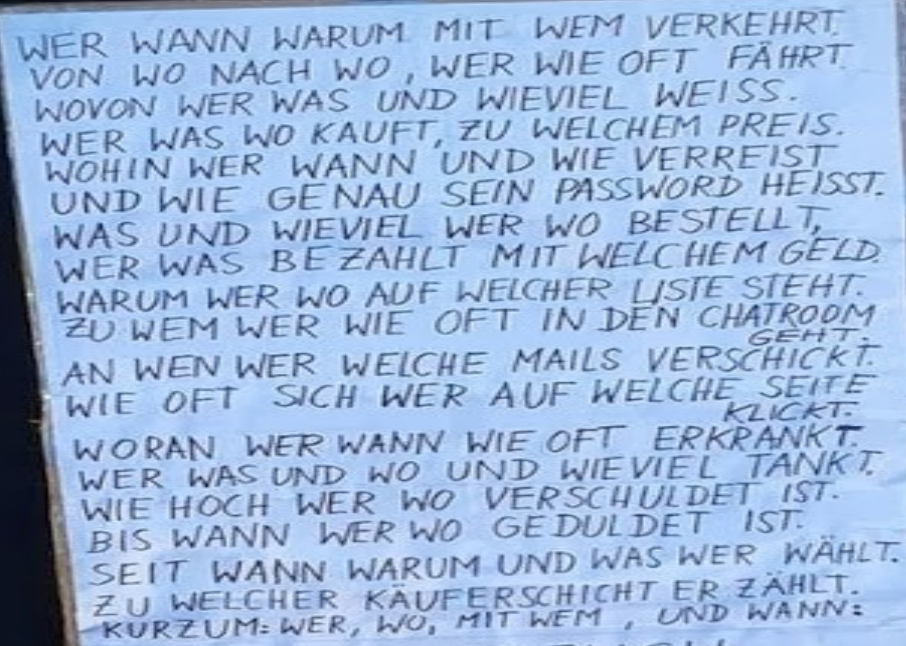 WER WANN WARUM MIT WEM VERKEHRT.
VON WO NACH WO, WER WIE OFT FÄHRT.
WOVON WER WAS UND WIEVIEL WEISS.
WER WAS WO KAUFT, ZU WELCHEM PREIS.
WOHIN WER WANN UND WIE VERREIST
UND WIE GENAU SEIN PASSWORD HEISST.
WAS UND WIEVIEL WER WO BESTELLT,
WER WAS BEZAHLT MIT WELCHEM GELD.
WARUM WER WO AUF WELCHER LISTE STEHT.
ZU WEM WER WIE OFT IN DEN CHATROOM
GEHT.
AN WEN WER WELCHE MAILS VERSCHICKT.
WIE OFT SICH WER AUF WELCHE SEITE
KLICKT.
WORAN WER WANN WIE OFT ERKRANKT.
WER WAS UND WO UND WIEVIEL TANKT.
WIE HOCH WER WO VERSCHULDET IST.
BIS WANN WER WO GEDULDET IST.
SEIT WANN WARUM UND WAS WER WÄHLT.
ZU WELCHER KÄUFERSCHICHT ER ZÄHLT.
KURZUM: WER, WO, MIT WEM, UND WANN: